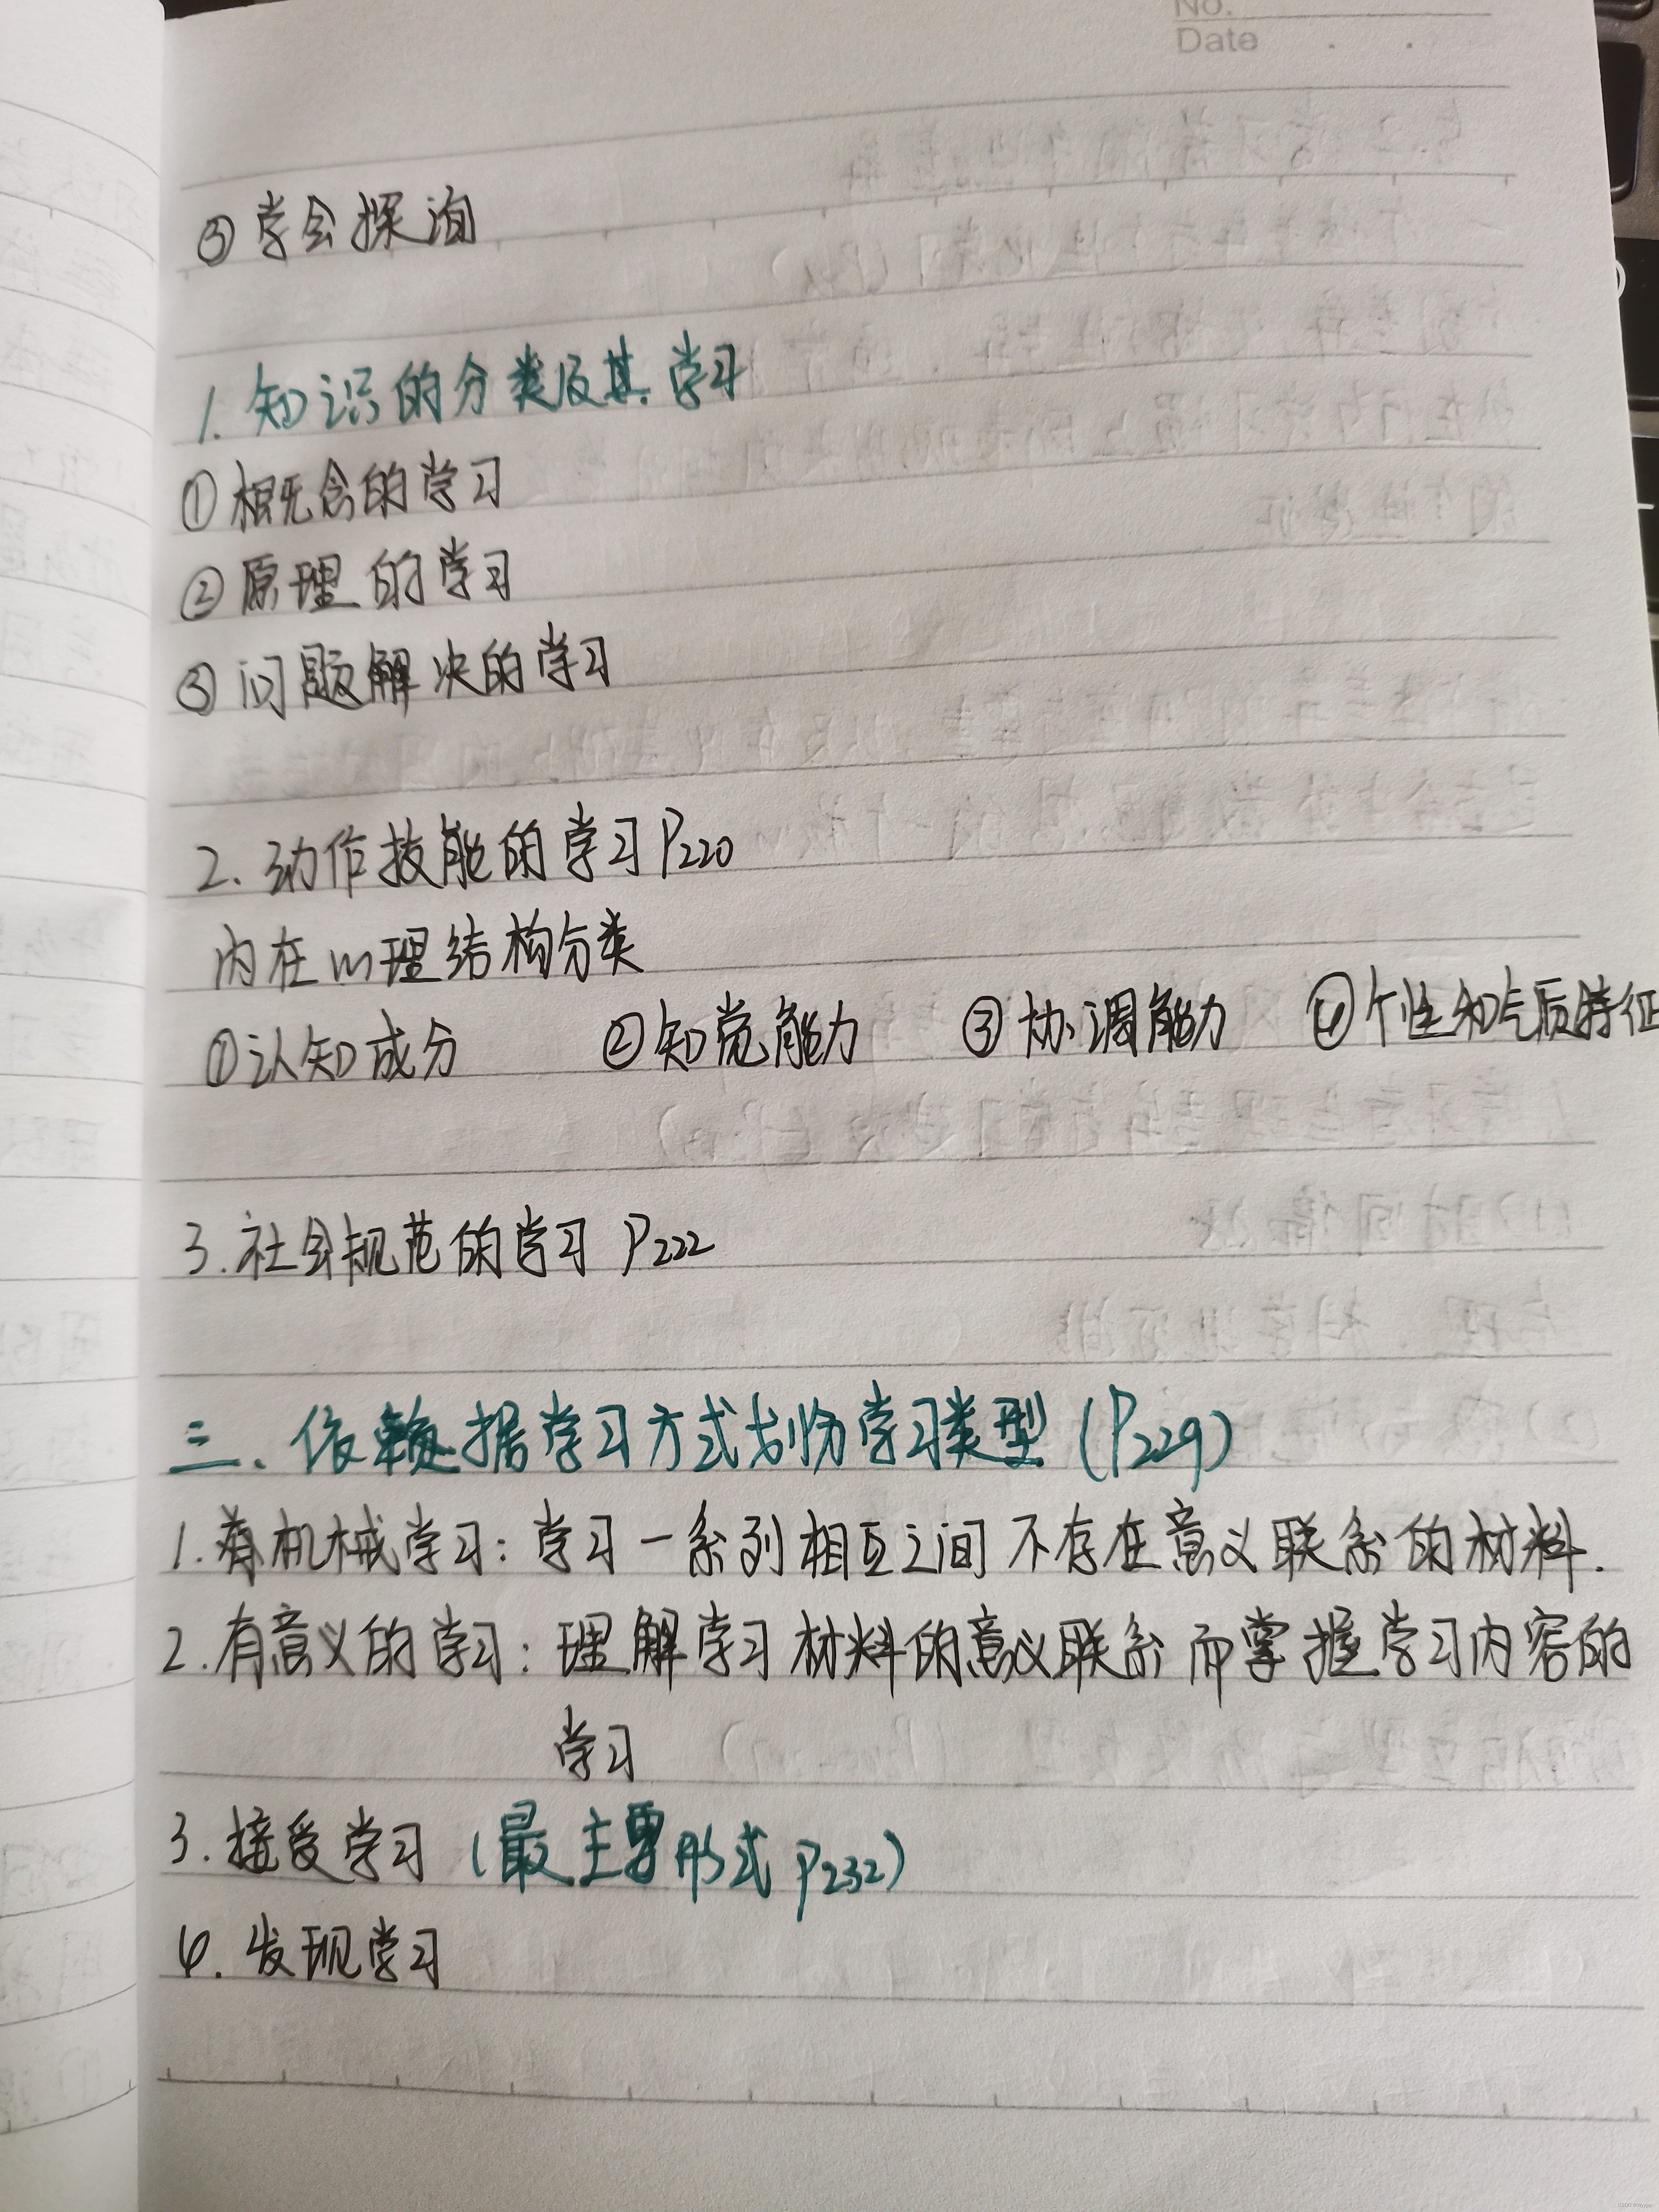 No.
Date
③学会探询
1.知识的分类及其学习
①概念的学习
②原理的学习
③问题解决的学习
2.动作技能的学习P220
内在心理结构分类
①认知成分 ②知觉能力 ③协调能力 ④个性和气质特征
3.社会规范的学习 P222
三.依据学习方式划分学习类型(P229)
1.机械学习:学习一系列相互之间不存在意义联系的材料.
2.有意义的学习:理解学习材料的意义联系而掌握学习内容的
学习
3.接受学习(最主要形式 P232)
4.发现学习